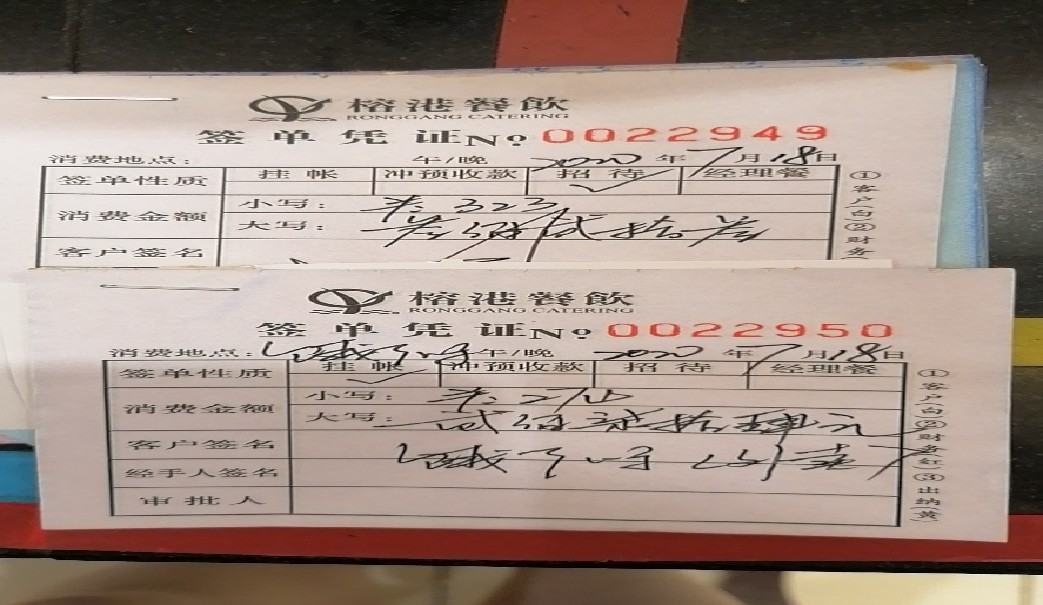 榕港餐飲
RONGGANG CATERING
签单凭证No 0022949
消费地点: 午/晚 2020年7月18日
签单性质 挂帐 冲预收款 招待 ✓ 经理餐
消费金额 小写: 323
大写: 叁佰贰拾叁
客户签名
①客户(白)②财务
榕港餐飲
RONGGANG CATERING
签单凭证No 0022950
消费地点: 午/晚 2020年7月18日
签单性质 挂帐 ✓ 冲预收款 招待 经理餐
消费金额 小写:
大写:
客户签名
经手人签名
审批人
①客户(白)②财务(红)③出纳(黄)